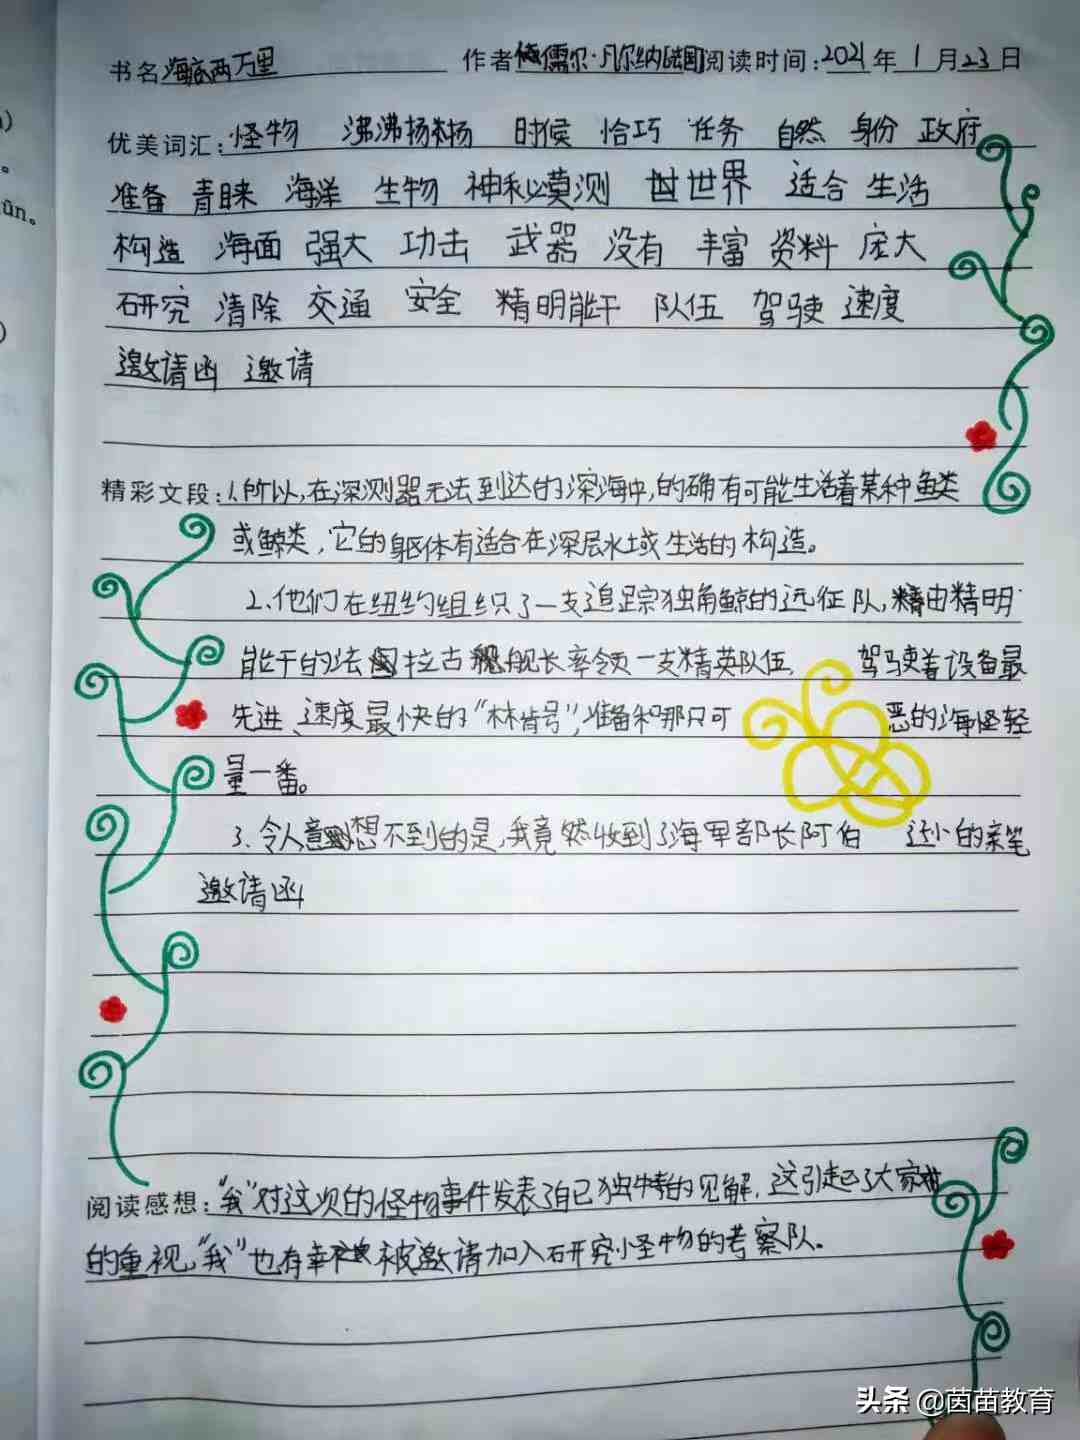 书名 海底两万里 作者 儒尔·凡尔纳[法国] 阅读时间：2021年1月23日
优美词汇：怪物 沸沸扬扬 时候 恰巧 任务 自然 身份 政府
准备 青睐 海洋 生物 神秘莫测 世界 适合 生活
构造 海面 强大 功击 武器 没有 丰富 资料 庞大
研究 清除 交通 安全 精明能干 队伍 驾驶 速度
邀请函 邀请
精彩文段：1.所以，在深测器无法到达的深海中，的确有可能生活着某种鱼类
或鲸类，它的躯体有适合在深层水域生活的构造。
2.他们在纽约组织了一支追踪独角鲸的远征队，由精明
能干的法拉古舰长率领一支精英队伍， 驾驶着设备最
先进、速度最快的“林肯号”，准备和那只可 恶的海怪轻
量一番。
3.令人意想不到的是，我竟然收到了海军部长阿伯 逊的亲笔
邀请函
阅读感想：“我”对这次的怪物事件发表了自己独特的见解，这引起了大家
的重视，“我”也有幸被邀请加入研究怪物的考察队。
头条 @茵苗教育
ūn。